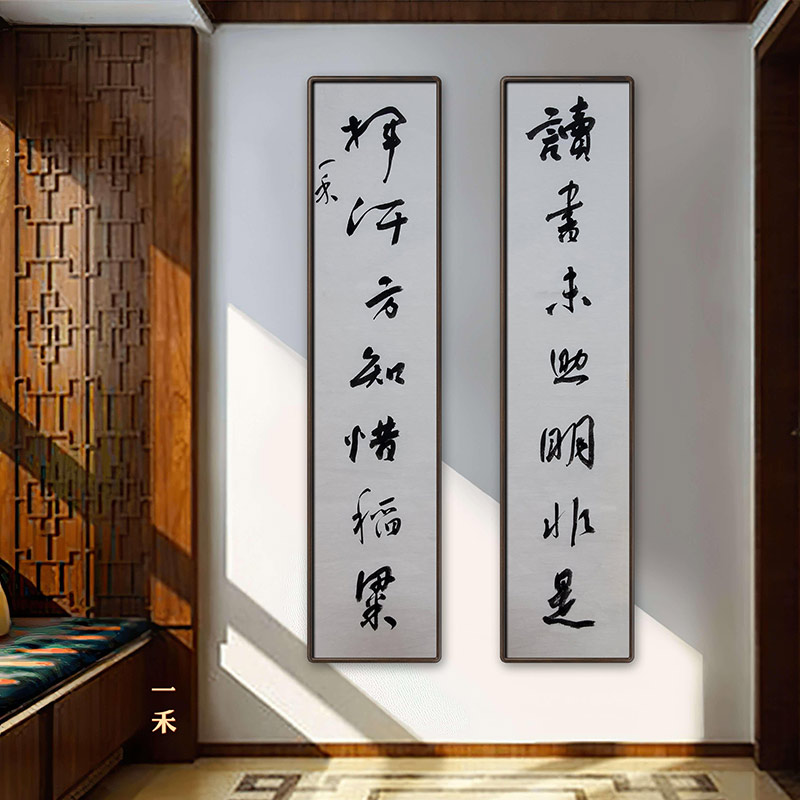 讀書未明非是
揮汗方知惜稻粟
一禾
一禾